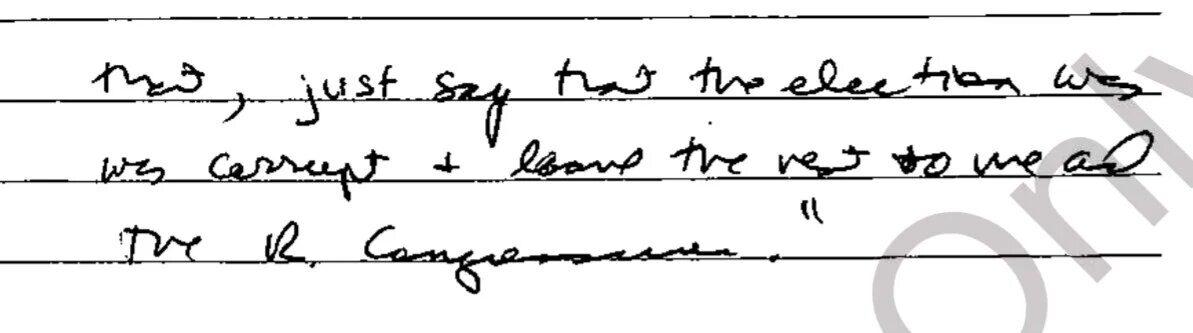 that, just say that the election was
was corrupt + leave the rest to me and
the R. Congressmen."
Only